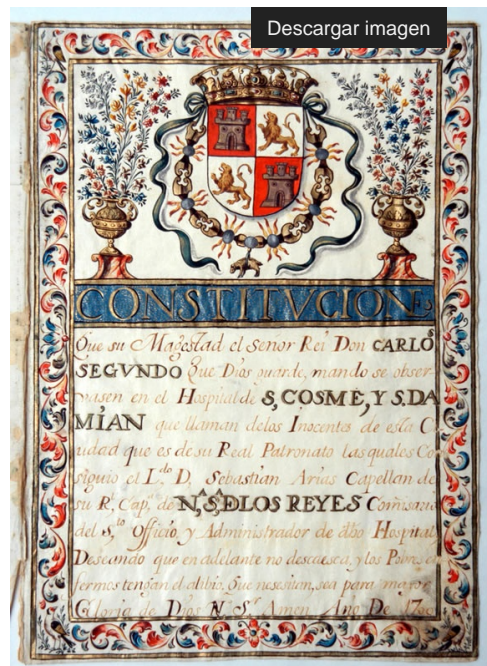 Descargar imagen
CONSTITVCIONES
Que su Magestad el Señor Rei Don CARLOS
SEGVNDO Que Dios guarde, mando se obser-
vasen en el Hospital de S, COSME, Y S. DA
MIAN que llaman delos Inocentes de esta Ci
udad que es de su Real Patronato las quales Co
siguio el L.do D. Sebastian Arias Capellan de
su R. Cap.a de N, S, D LOS REYES Comisario
del S.to Officio, y Administrador de dho Hospital
Deseando que en adelante no descaesca, y los Pobres en
fermos tengan el alibio, Que nesesitan, sea para mayor
Gloria de Dios N. S.r Amen Año De 1700